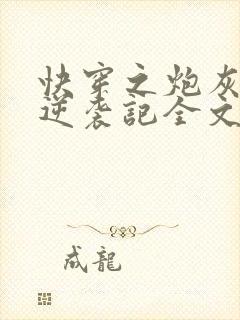 快穿之炮灰
逆袭記全文
成龍